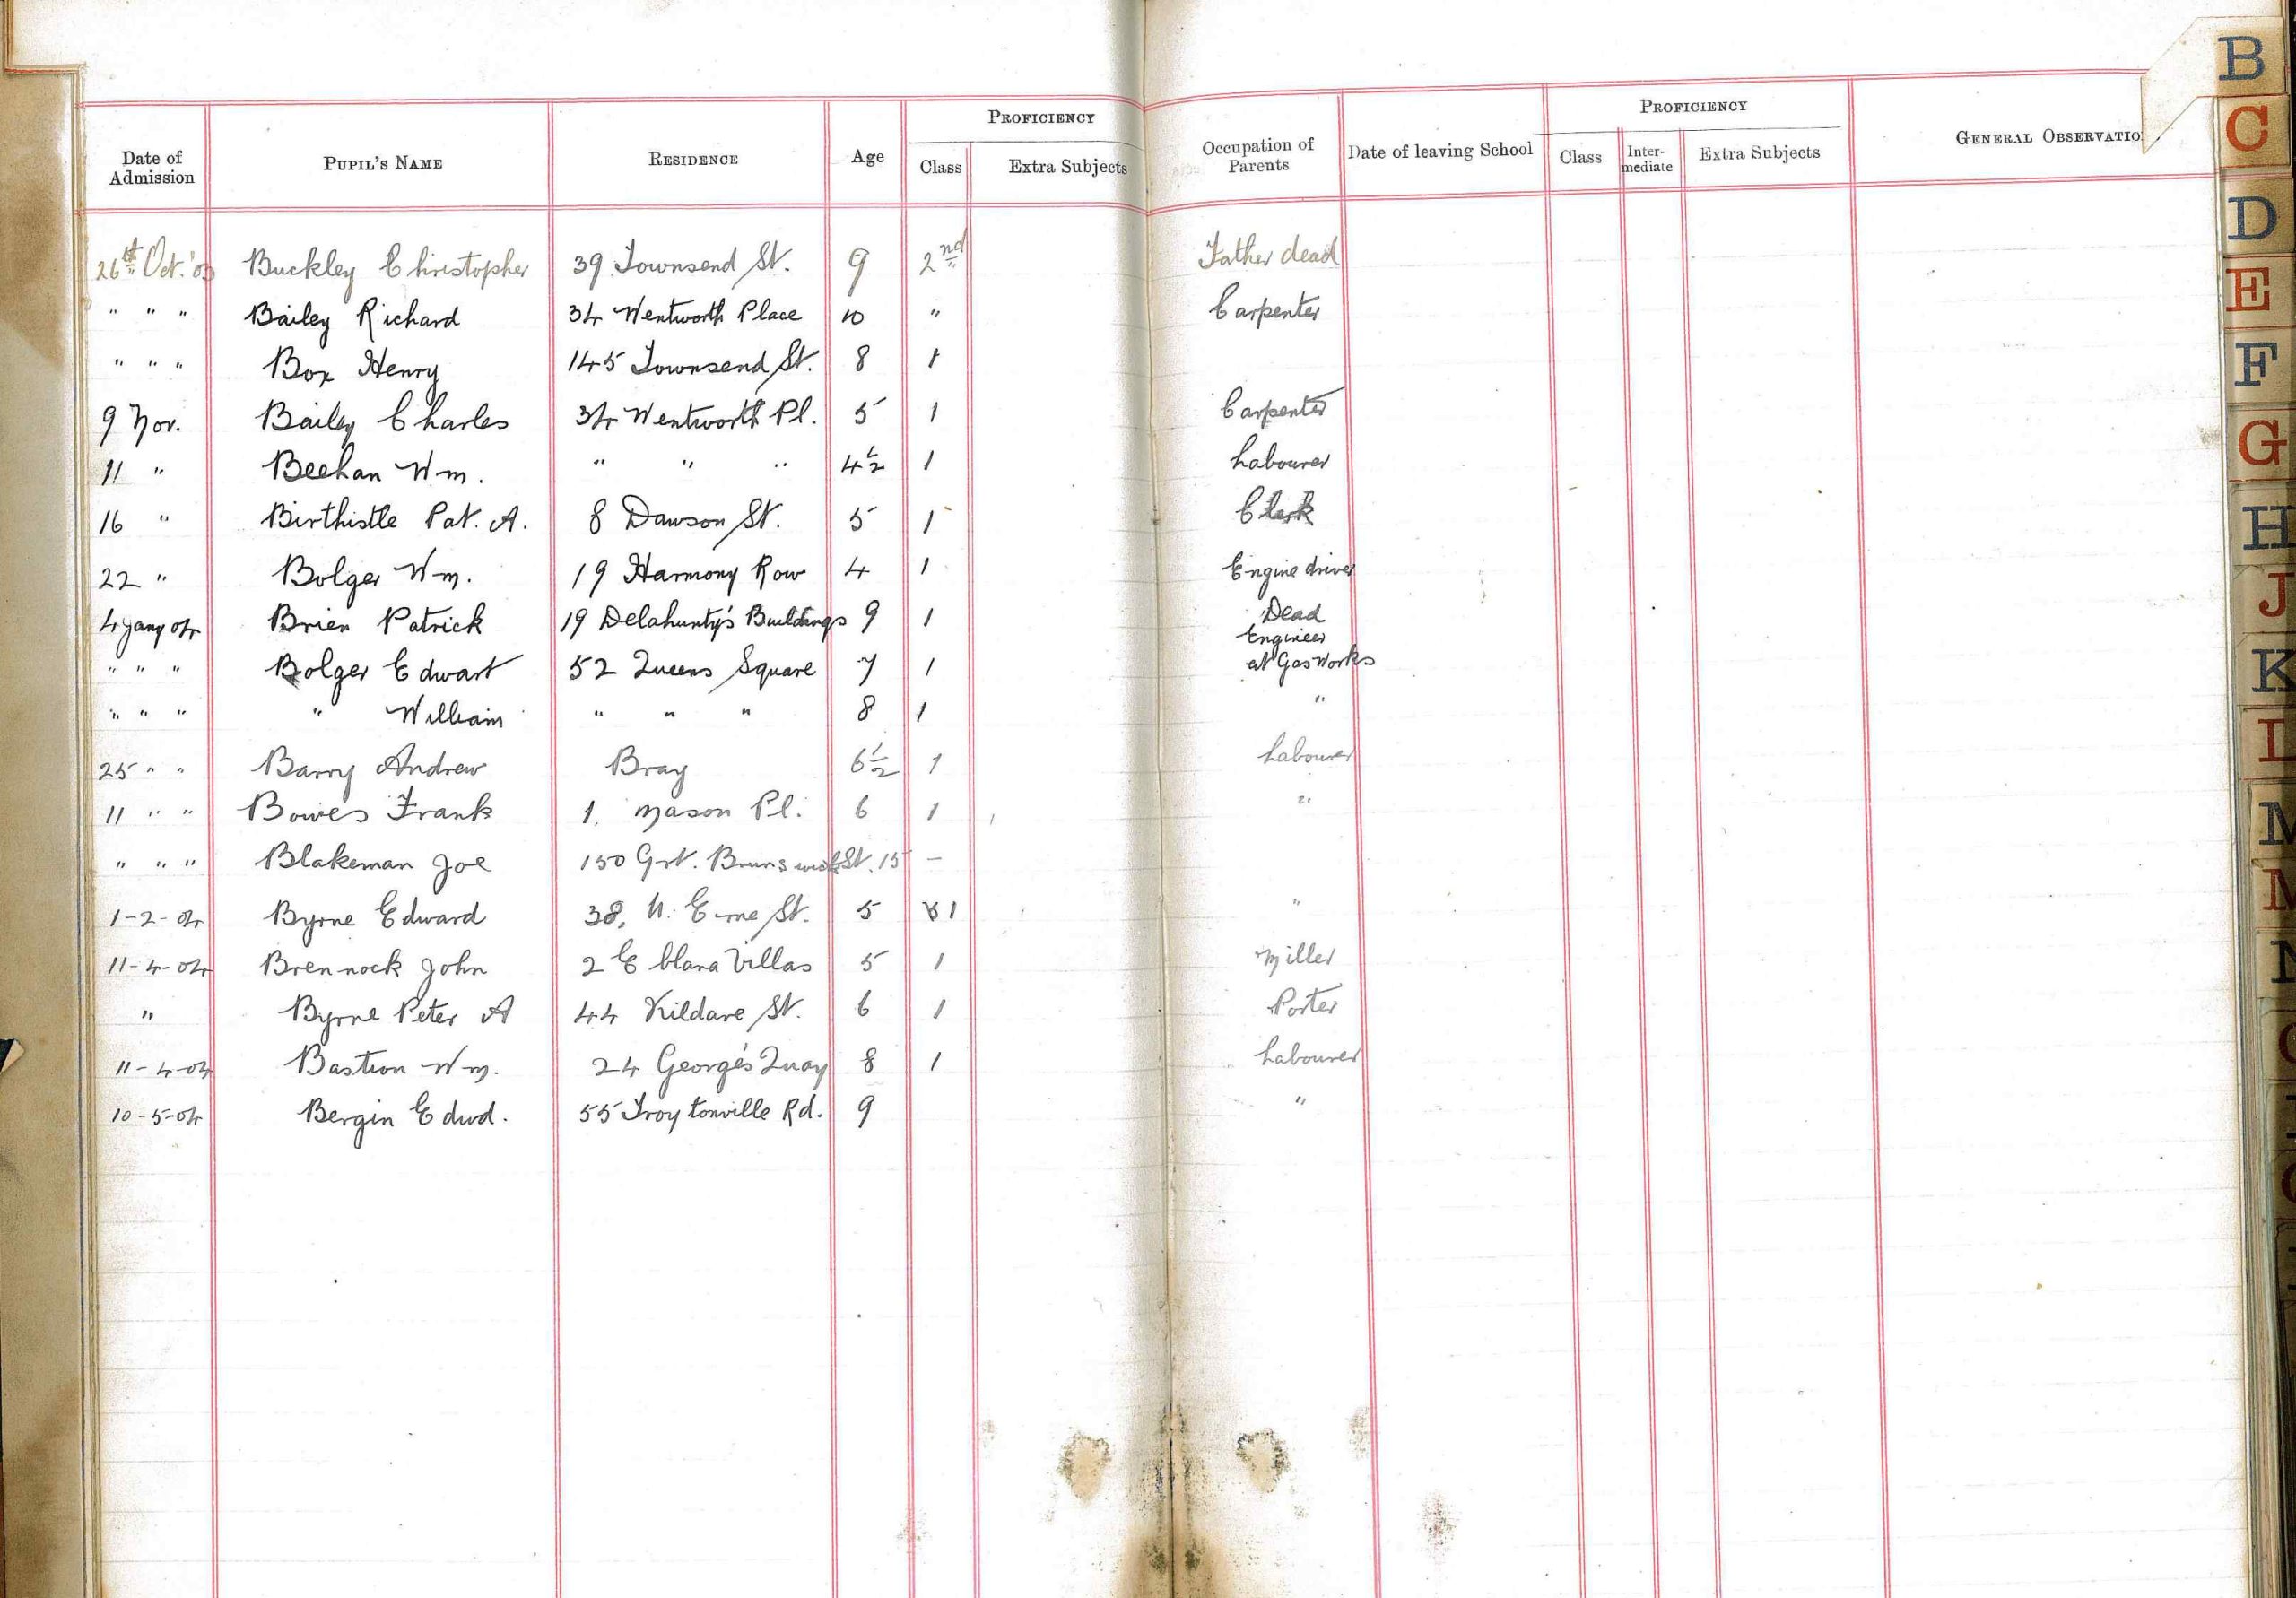 PROFICIENCY PROFICIENCY
Date of Admission PUPIL'S NAME RESIDENCE Age Class Extra Subjects Occupation of Parents Date of leaving School Class Inter-mediate Extra Subjects GENERAL OBSERVATIO
26th Oct. '03 Buckley Christopher 39 Townsend St. 9 2nd Father dead
" " " Bailey Richard 34 Wentworth Place 10 " Carpenter
" " " Box Henry 145 Townsend St. 8 1
9 Nov. Bailey Charles 34 Wentworth Pl. 5 1 Carpenter
11 " Beehan Wm. " " " 4½ 1 Labourer
16 " Birthistle Pat. A. 8 Dawson St. 5 1 Clerk
22 " Bolger Wm. 19 Harmony Row 4 1 Engine driver
4 Jany 04 Brien Patrick 19 Delahunty's Buildings 9 1 Dead
" " " Bolger Edwart 52 Queens Square 7 1 Engineer at Gas Works
" " " " William " " " 8 1 "
25 " " Barry Andrew Bray 6½ 1 Labourer
11 " " Bowes Frank 1. Mason Pl. 6 1 "
" " " Blakeman Joe 150 Grt. Brunswick St. 15 –
1-2-04 Byrne Edward 38, U. Erne St. 5 1 "
11-4-04 Brennock John 2 Eblana Villas 5 1 Miller
" Byrne Peter A 44 Kildare St. 6 1 Porter
11-4-04 Bastion Wm. 24 George's Quay 8 1 Labourer
10-5-04 Bergin Edwd. 55 Troytonville Rd. 9 "
B
C
D
E
F
G
H
J
K
L
M
M
N